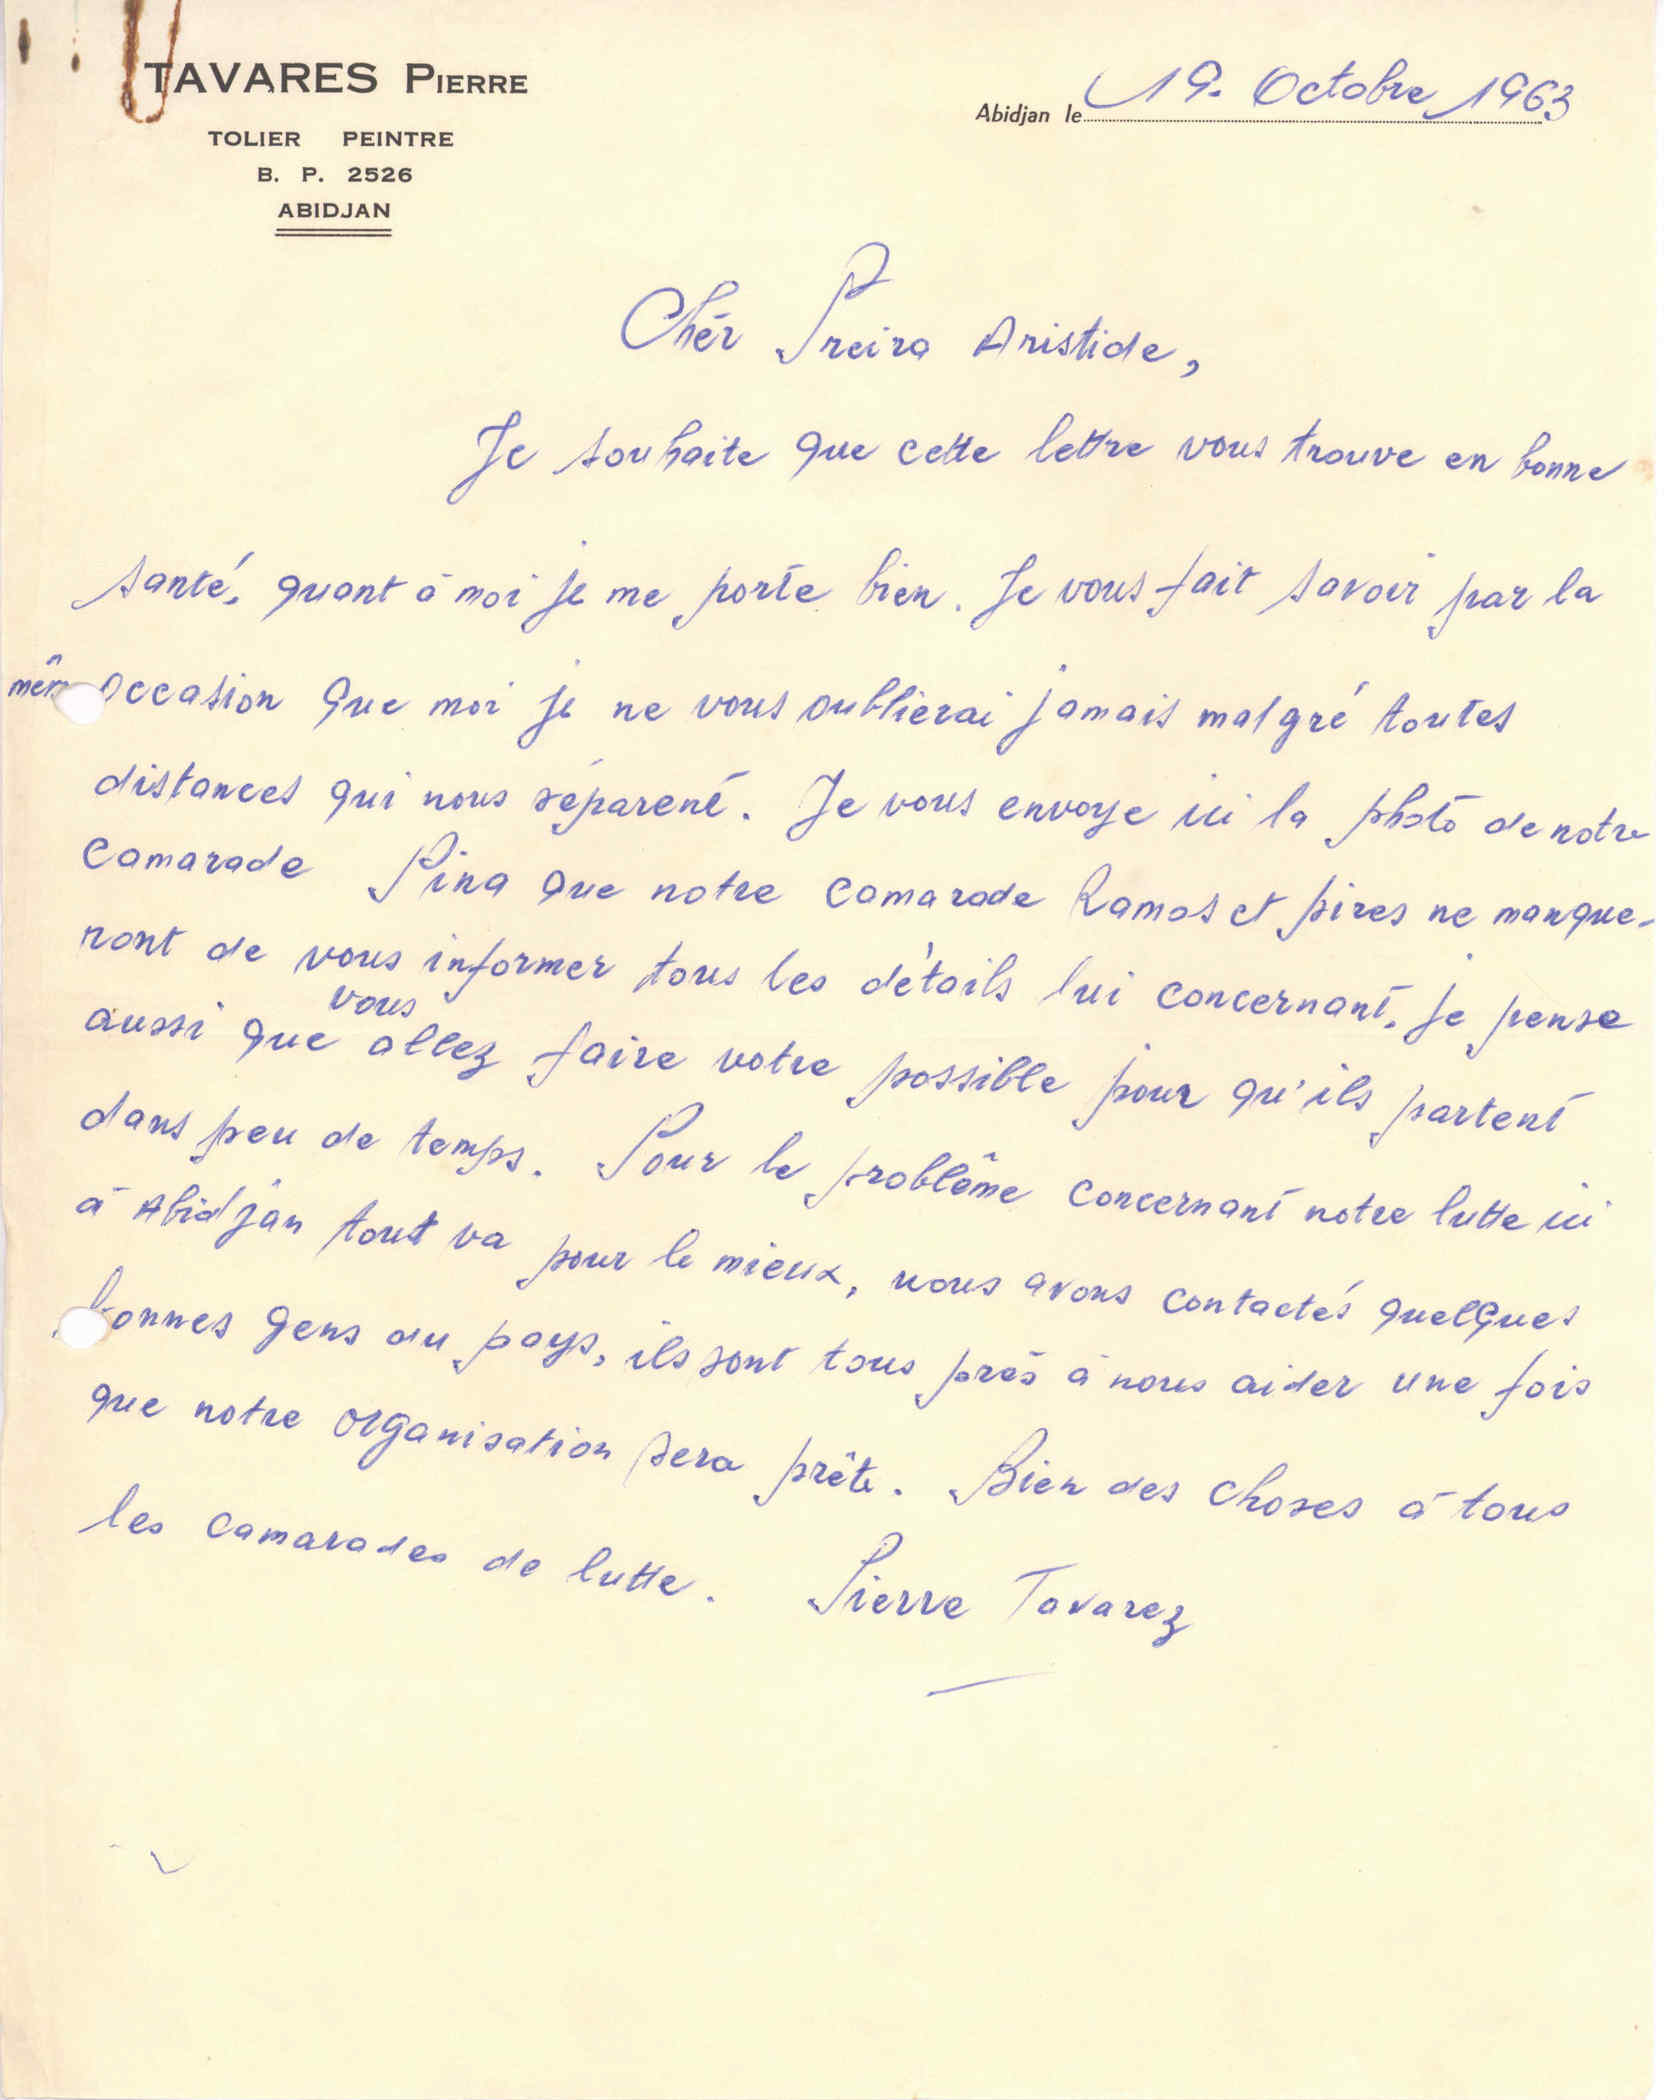 TAVARES PIERRE
TOLIER PEINTRE
B. P. 2526
ABIDJAN
Abidjan le 19. Octobre 1963
Chér Preira Aristide,
Je souhaite que cette lettre vous trouve en bonne
santé, quant à moi je me porte bien. Je vous fait savoir par la
mêm occasion que moi je ne vous oublierai jamais malgré toutes
distances qui nous séparent. Je vous envoye ici la photo de notre
camarade Pina que notre camarade Ramos et pires ne manque-
ront de vous informer tous les détails lui concernant, je pense
aussi que vous allez faire votre possible pour qu'ils partent
dans peu de temps. Pour le problême concernant notre lutte ici
à Abidjan tout va pour le mieux, nous avons contactés quelques
bonnes gens du pays, ils sont tous près à nous aider une fois
que notre organisation sera prête. Bien des choses à tous
les camarades de lutte. Pierre Tavarez